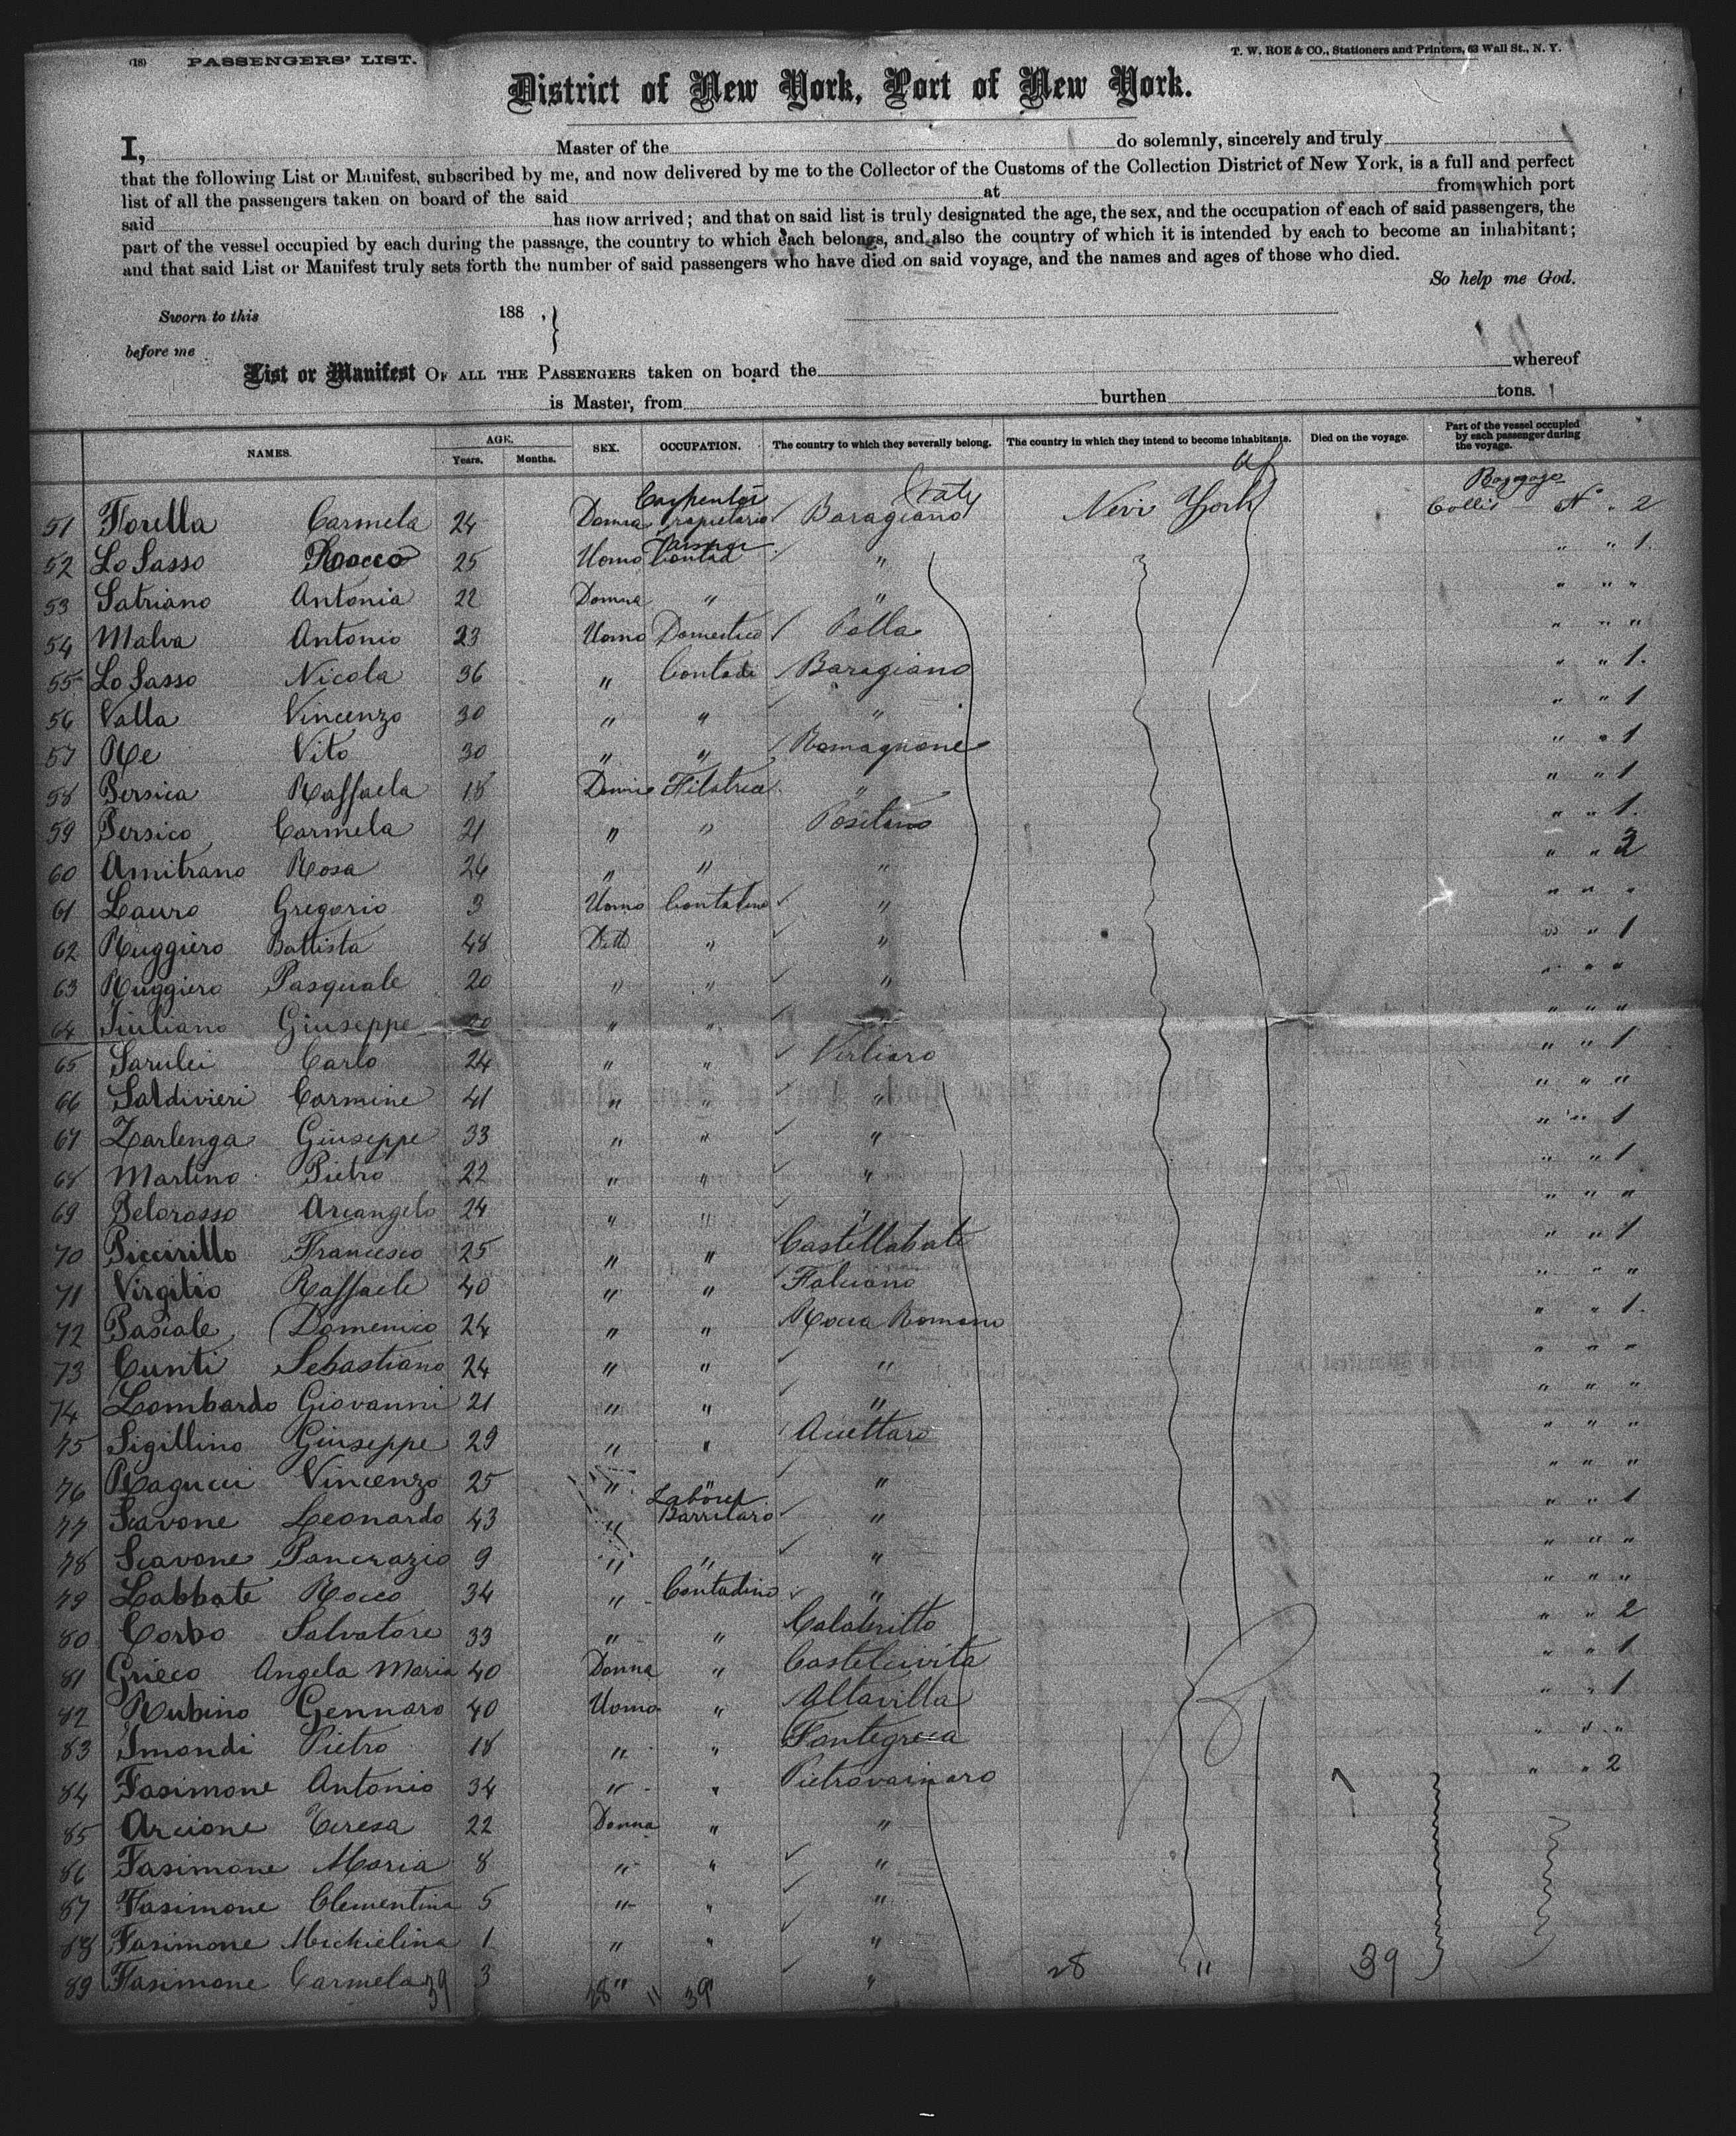 (18) PASSENGERS' LIST.
T. W. ROE & CO., Stationers and Printers, 63 Wall St., N. Y.
District of New York, Port of New York.
I, Master of the do solemnly, sincerely and truly
that the following List or Manifest, subscribed by me, and now delivered by me to the Collector of the Customs of the Collection District of New York, is a full and perfect
list of all the passengers taken on board of the said at from which port
said has now arrived; and that on said list is truly designated the age, the sex, and the occupation of each of said passengers, the
part of the vessel occupied by each during the passage, the country to which each belongs, and also the country of which it is intended by each to become an inhabitant;
and that said List or Manifest truly sets forth the number of said passengers who have died on said voyage, and the names and ages of those who died.
So help me God.
Sworn to this 188 , }
before me
List or Manifest OF ALL THE PASSENGERS taken on board the whereof
is Master, from burthen tons.
NAMES. AGE. Years. Months. SEX. OCCUPATION. The country to which they severally belong. The country in which they intend to become inhabitants. Died on the voyage. Part of the vessel occupied by each passenger during the voyage.
Carpenter Italy Bagage
51 Fiorella Carmela 24 Donna Propietario Baragiano New York Collis N° 2
52 Lo Sasso Rocco 25 Uomo Contad " " " 1
53 Satriano Antonia 22 Donna " " " " "
54 Malva Antonio 23 Uomo Domestico Polla " " "
55 Lo Sasso Nicola 36 " Contadi Baragiano " " 1
56 Valla Vincenzo 30 " " " " " 1
57 Re Vito 30 " " Romagnone " " 1
58 Persica Raffaela 18 Donne Filatrice " " " 1
59 Persico Carmela 21 " " Positano " " 1
60 Amitrano Rosa 26 " " " " "
61 Lauro Gregorio 3 Uomo Contadino " " " "
62 Ruggiero Battista 48 Detto " " " " 1
63 Ruggiero Pasquale 20 " " " " " "
64 Giuliano Giuseppe " " " " " "
65 Sarulei Carlo 24 " " " " 1
66 Saldivieri Carmine 41 " " " " " "
67 Zarlenga Giuseppe 33 " " " " " 1
68 Martino Pietro 22 " " " " " 1
69 Belorosso Arcangelo 24 " " " " " "
70 Piccirillo Francesco 25 " " Castellabate " " 1
71 Virgilio Raffaele 40 " " Falciano " " "
72 Pascale Domenico 24 " " Rocca Romano " " 1
73 Cunti Sebastiano 24 " " " " " "
74 Lombardo Giovanni 21 " " " " " "
75 Sigillino Giuseppe 29 " " Acettaro " " "
76 Ragucci Vincenzo 25 " " " " " "
Laborer
77 Scavone Leonardo 43 " Barrilaro " " " 1
78 Scavone Pancrazio 9 " " " " " "
79 Labbate Rocco 34 " Contadino " " " "
80 Corbo Salvatore 33 " " Calabritto " " 2
81 Grieco Angela Maria 40 Donna " Castelcivita " " 1
82 Rubino Gennaro 40 Uomo " Altavilla " " 1
83 Imondi Pietro 18 " " Fontegreca " " "
84 Fasimone Antonio 34 " " Pietravairaro " " 2
85 Arcione Teresa 22 Donna " "
86 Fasimone Maria 8 " " "
87 Fasimone Clementina 5 " " "
88 Fasimone Michielina 1 " " "
89 Fasimone Carmela 3 " "
39 28 11 39 28 11 39